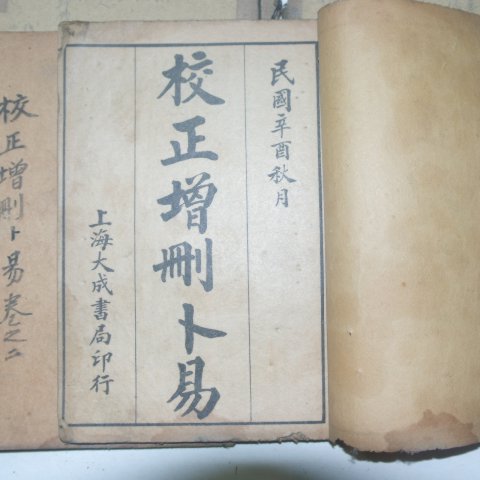 民國辛酉秋月
校正增刪卜易
上海大成書局印行
校正增刪卜易卷之二